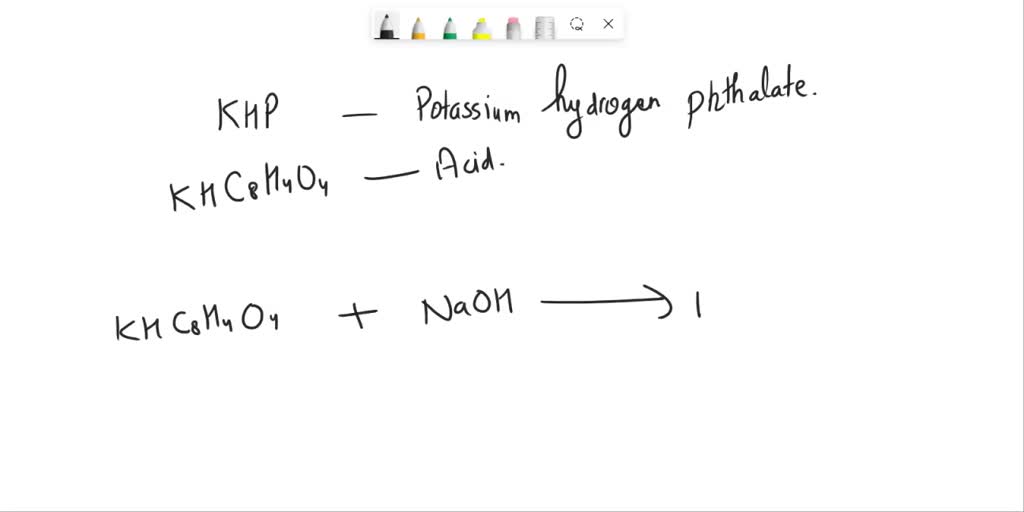 KHP — Potassium hydrogen phthalate.
KHC₈H₄O₄ — Acid.
KHC₈H₄O₄ + NaOH ⟶ |